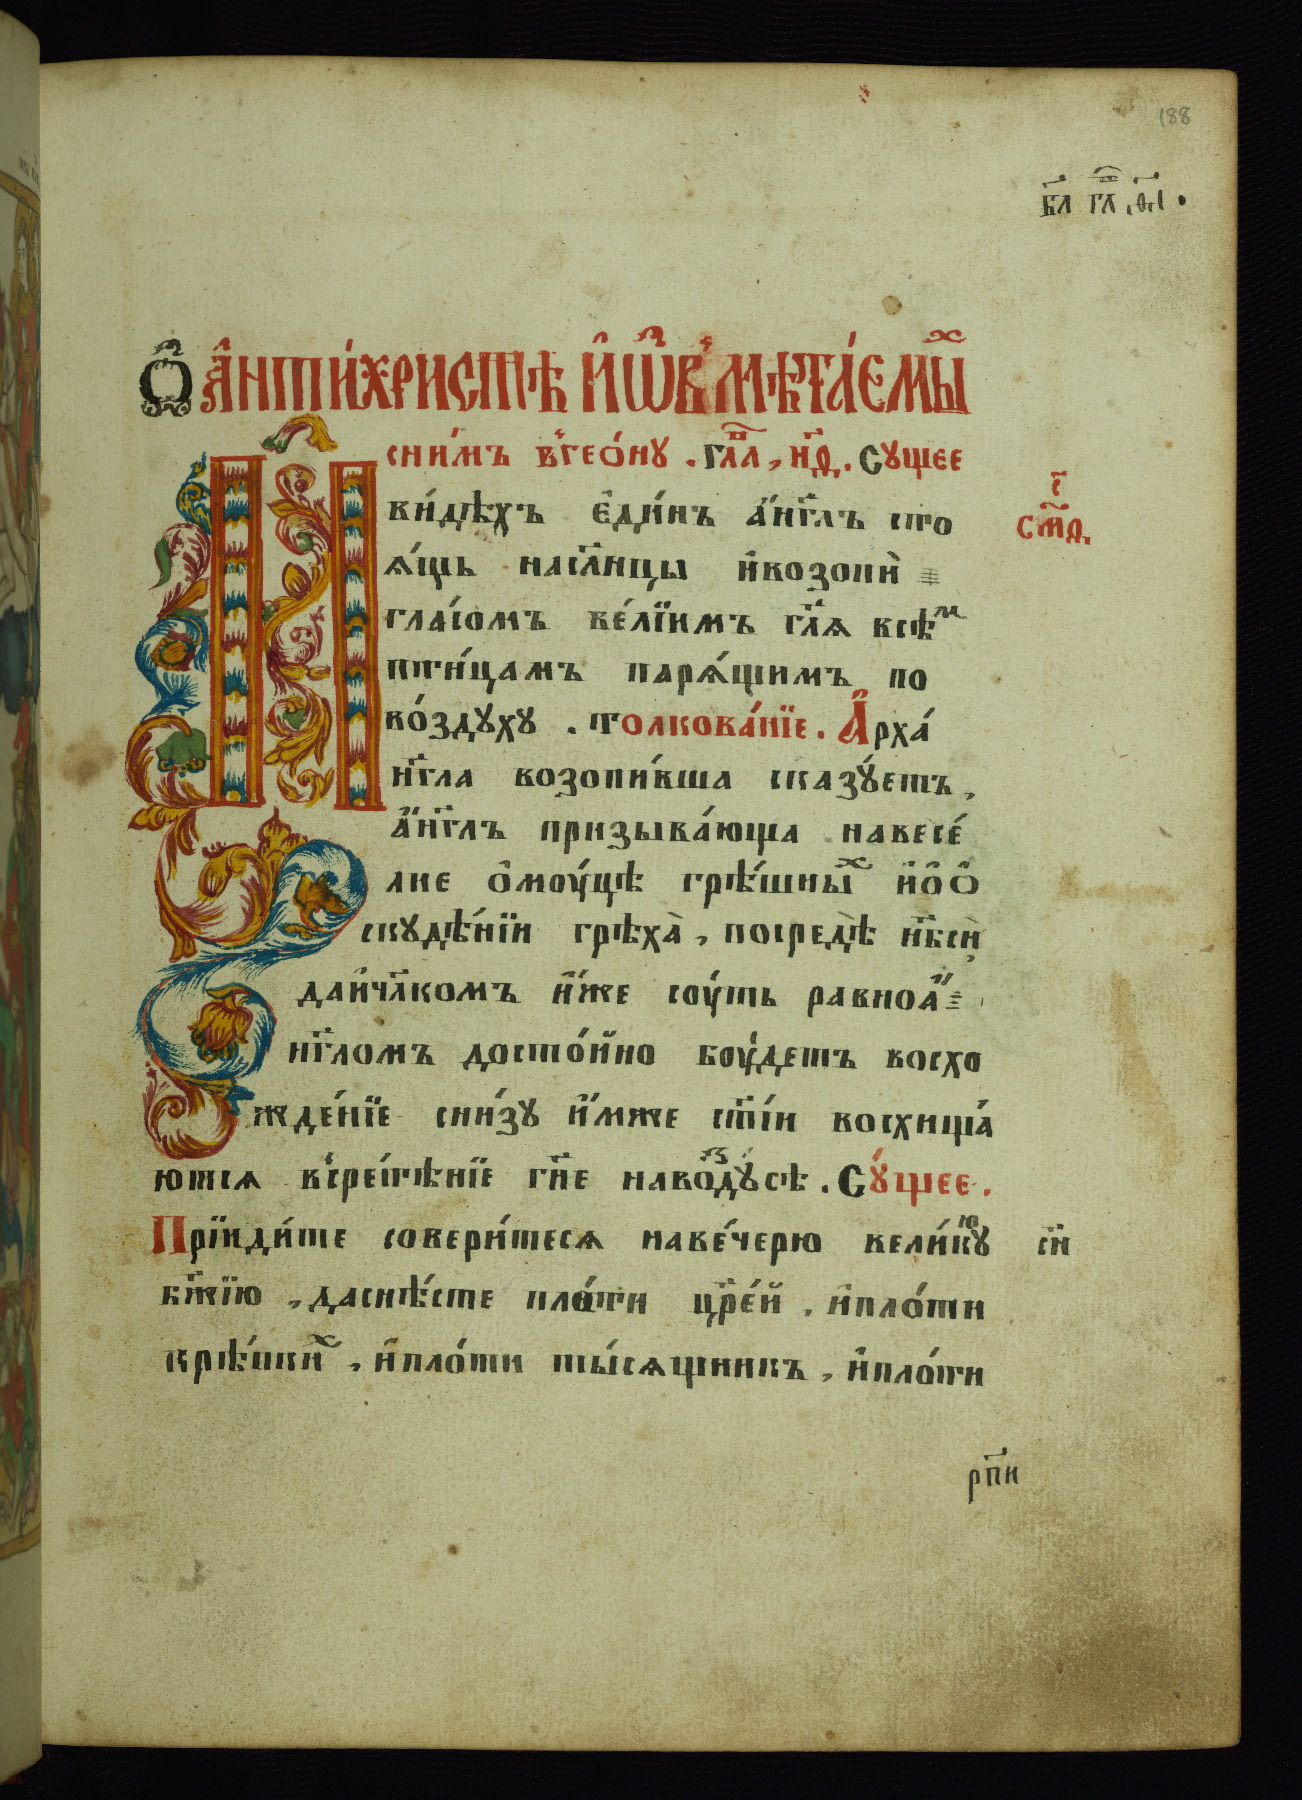 188
гл҃. ѳ҃ı.
Ѡ҆ а҆нтихрїстѣ и҆ ѡ҆в мѣтаємыⷯ
сни́мъ в̾геѻ́ну . гла҃, н҃д. Сущее
ви́дѣхъ є҆ди́нъ а҆́нг҃лъ сто
с҃
ст҃д.
ѧ́щь насл҃нцы и҆возопи̂
гла́сомъ ве́лїимъ гл҃ѧ всѣⷨ
пти́цамъ парѧ́щимъ по
во́здуху . толкова́нїе . А҆рха́
нг҃ла возопи́вша сказꙋ́етъ,
а҆́нг҃лъ призыва́юща навесе́
лие ѡ҆моу́цѣ грѣ́шныⷯ и҆ѡ҆ѻ
скудѣ́нїи грѣха̀, посредѣ̀ нб҃си̂
даи҆чл҃комъ и҆̀же соу́ть равноа҆́
нг҃ломъ досто́йно бꙋ́детъ восхо
жде́нїе сни́зу и҆̀мже ст҃і́и восхища́
ютсѧ в̾срѣ́тѣнїе гн҃е навоⷥдꙋ́сѣ . Сꙋ́щее .
Прїиди́те совери́тесѧ наве́черю вели́кꙋю сїи҃
бж҃їю , даснѣ́сте пло́ти цр҃е́й , и҆пло́ти
крѣ́пкиⷯ , и҆пло́ти ты́сѧщникъ , и҆пло́ти
рп҃и